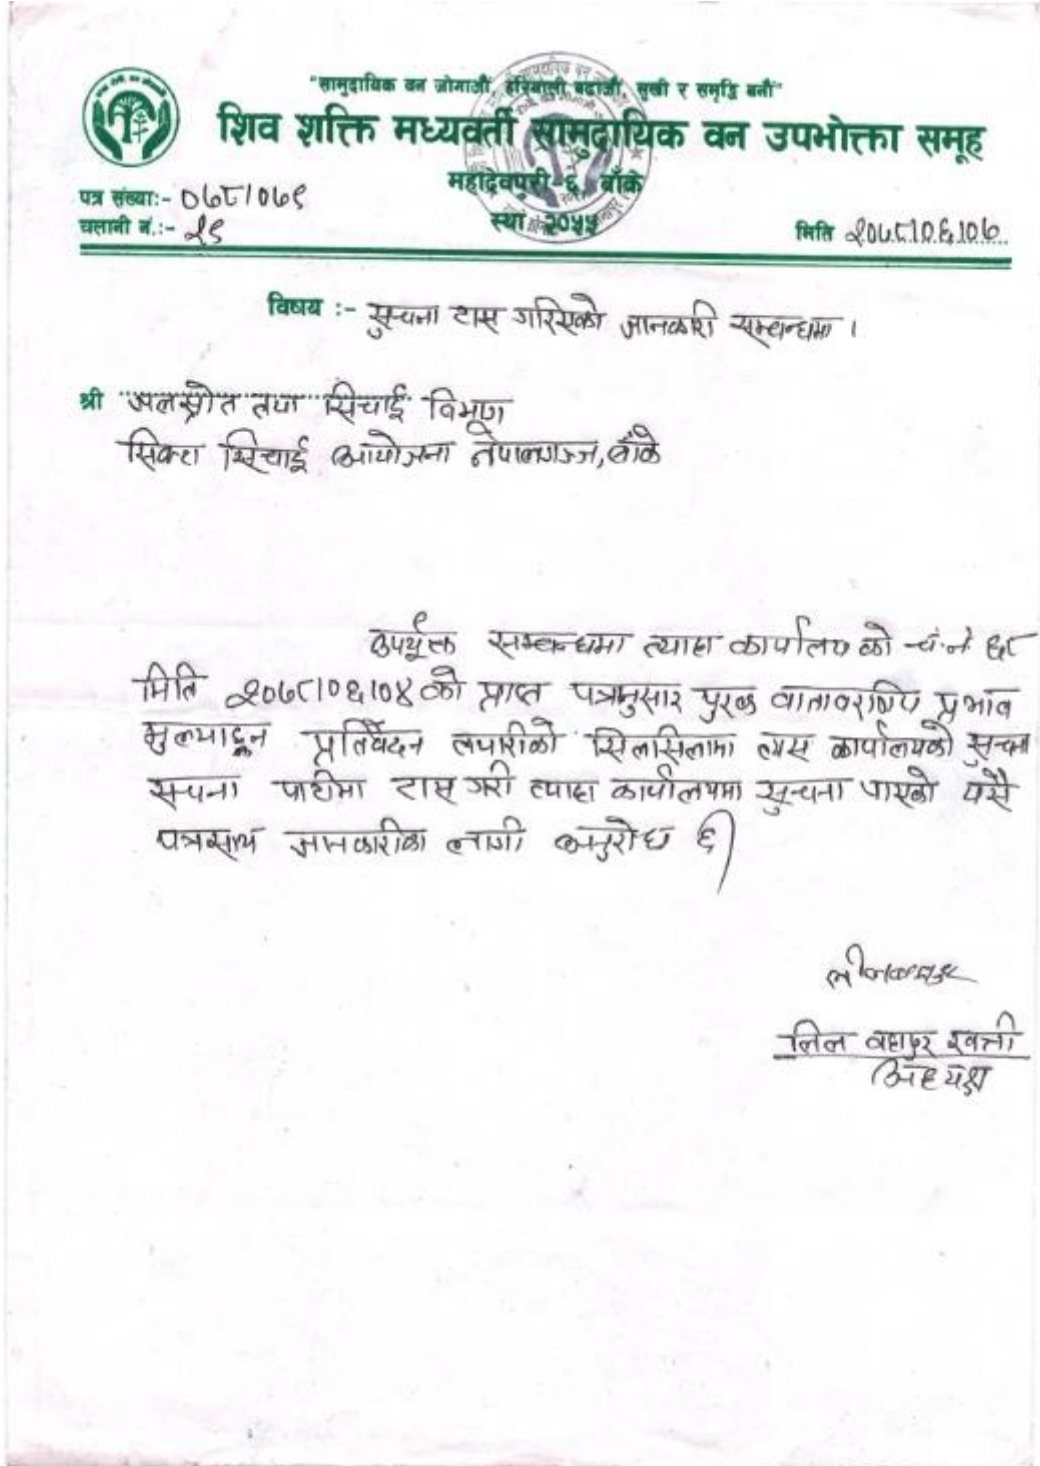 "सामुदायिक वन जोगाऔं, हरियाली बढाऔं, सुखी र समृद्धि बनौं"
शिव शक्ति मध्यवर्ती सामुदायिक वन उपभोक्ता समूह
महादेवपुरी-६, बाँके
स्था २०५५
पत्र संख्या:- ०७८/०७९
चलानी नं.:- २९
मिति २०७८/०६/०७
विषय :- सुचना टास गरिएको जानकारी सम्बन्धमा ।
श्री जलस्रोत तथा सिंचाई विभाग
सिक्टा सिंचाई आयोजना नेपालगञ्ज, बाँके
उपर्युक्त सम्बन्धमा त्याहा कार्यालय को च.नं ६८
मिति २०७८/०६/०४ को प्राप्त पत्रानुसार पुरक वातावरणिय प्रभाव
मुल्याङ्कन प्रतिवेदन तयारीको सिलसिलामा त्यस कार्यालयको सुचना
सचना पाटीमा टास गरी त्याहा कार्यालयमा सुचना पाएको यसै
पत्रसाथ जानकारीका लागी अनुरोध छ।
लिल बहादुर खत्री
अध्यक्ष